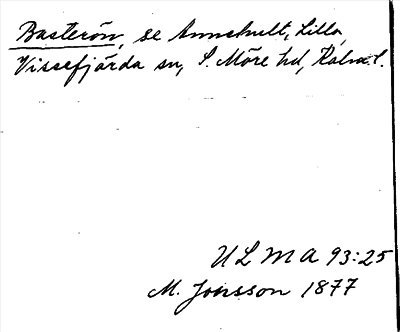 Basterön, se Annehult, Lilla,
Vissefjärda sn, S. Möre hd, Kalm. l.
ULMA 93:25
M. Jonsson 1877